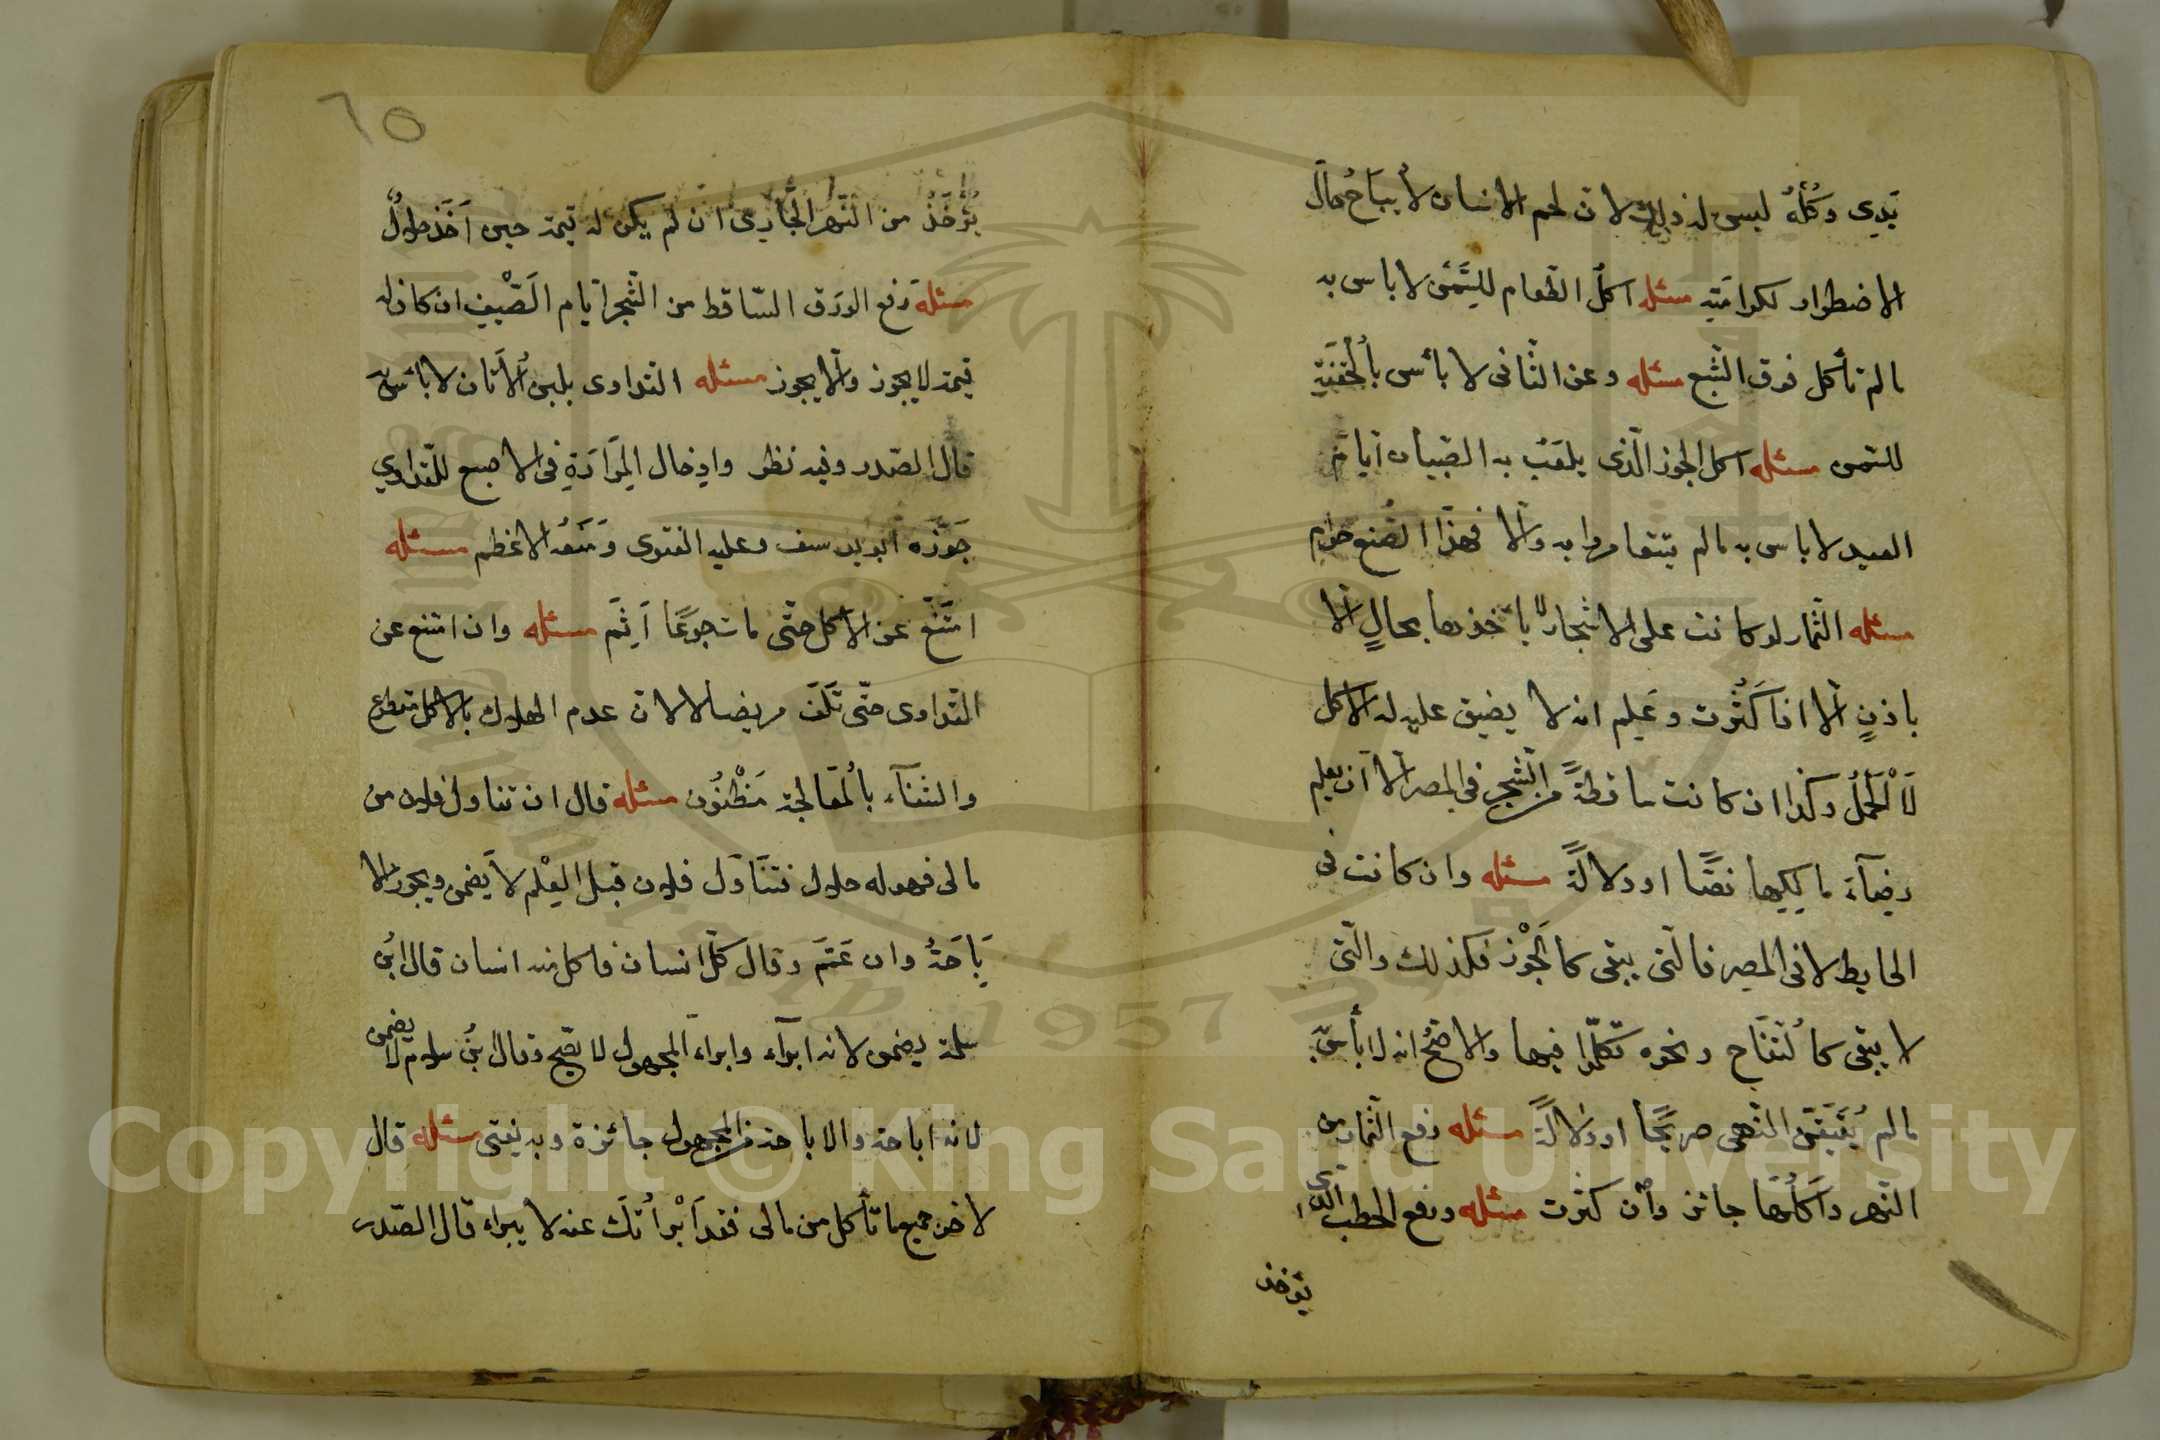 يَدِى وَكُلْهُ ليس له ذلك لان لحم الانسان لا يباح حال
الاضطرار لكرامته مسئله اكل الطعام للسَّمن لا باس به
مالم تأكل فوق الشبع مسئله وعن الثانى لا بأس بالحقنة
للسمن مسئله اكل الجوز الّذى يلعب به الصبيان ايام
العيد لا باس به مالم يتقامروا به والّا فهذا الصُنع حرام
مسئله الثمار لو كانت على الاشجار لا يأخذها بحالٍ الّا
باذنٍ الّا اذا كَثُرت وعَلِم انه لا يضيق عليه له الاكل
لَا الْحَمْلُ وكذا ان كانت ساقطةً من الشجر فى المصر الّا ان يعلم
رضآء مالكيها نصًّا او دلالةً مسئله وان كانت فى
الحايط لا فى المصر فالّتى يبقى كالجَوْز فكذلك والّتى
لا يبقى كالتفّاح ونحوه تكلّموا فيها والاصحُّ انه لا بأس به
مالم يُتَيَقَّن النّهى صريحًا او دلالةً مسئله رفع الثمار من
النّهر واَكلُهَا جائز وان كثرت مسئله ورفع الحطب الذى
يؤخذ
٦٥
يُؤخَذُ من النّهر الجارى ان لم يكن له قيمة حين اَخَذَ حلالٌ
مسئله رفع الورَق السّاقط من الشّجر ايام الصَّيْفِ ان كان له
قيمة لا يجوز والّا يجوز مسئله التداوى بلبن الأتان لا بأس به
قال الصّدر وفيه نظر وادخال المَرارَةِ فى الاصبع للتّداوي
جَوَّزَه ابو يوسف وعليه الفتوى وَمَنَعَهُ الاعظم مسئله
امتَنَعَ عن الاكل حتّى مات جوعًا اَثِمَ مسئله وان امتنع عن
التداوى حتّى تَلَفَ مريضا لا لان عدم الهلاك بالاكل مقطوع
والشفآء بالمُعَالجة مَظْنُون مسئله قال ان تناول فلان من
مالى فهو له حلال فتَنَاوَل فلان قبل العِلْم لا يَضمن ويجوز الا
يَاحَةُ وان عَمَّمَ وقال كلّ انسان فاكل منه انسان قال ابن
سلمة يضمن لانه ابرآء وابراء المجهول لا يصح وقال ابنُ سلام لا يضمن
لانه اباحة والاباحة من المجهول جائزة وبه يفتى مسئله قال
لاخر جميع ما تأكل من مالى فقد اَبْرأتُكَ عنه لا يبراء قال الصّدر